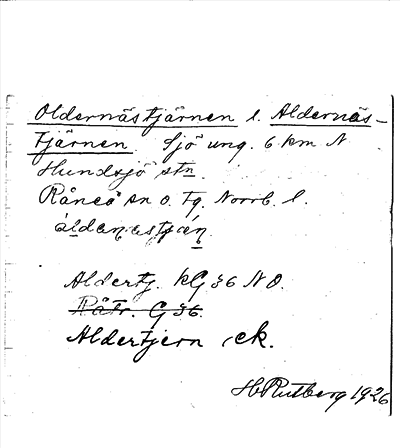 Oldernästjärnen l. Aldernäs-
tjärnen. Sjö ung. 6 km N
Hundsjö stn.
Råneå sn o. tg. Norrb. l.
Aldertj. KG 36 NO.
Råtr. G 36.
Aldertjern, ek.
H Rutberg 1926